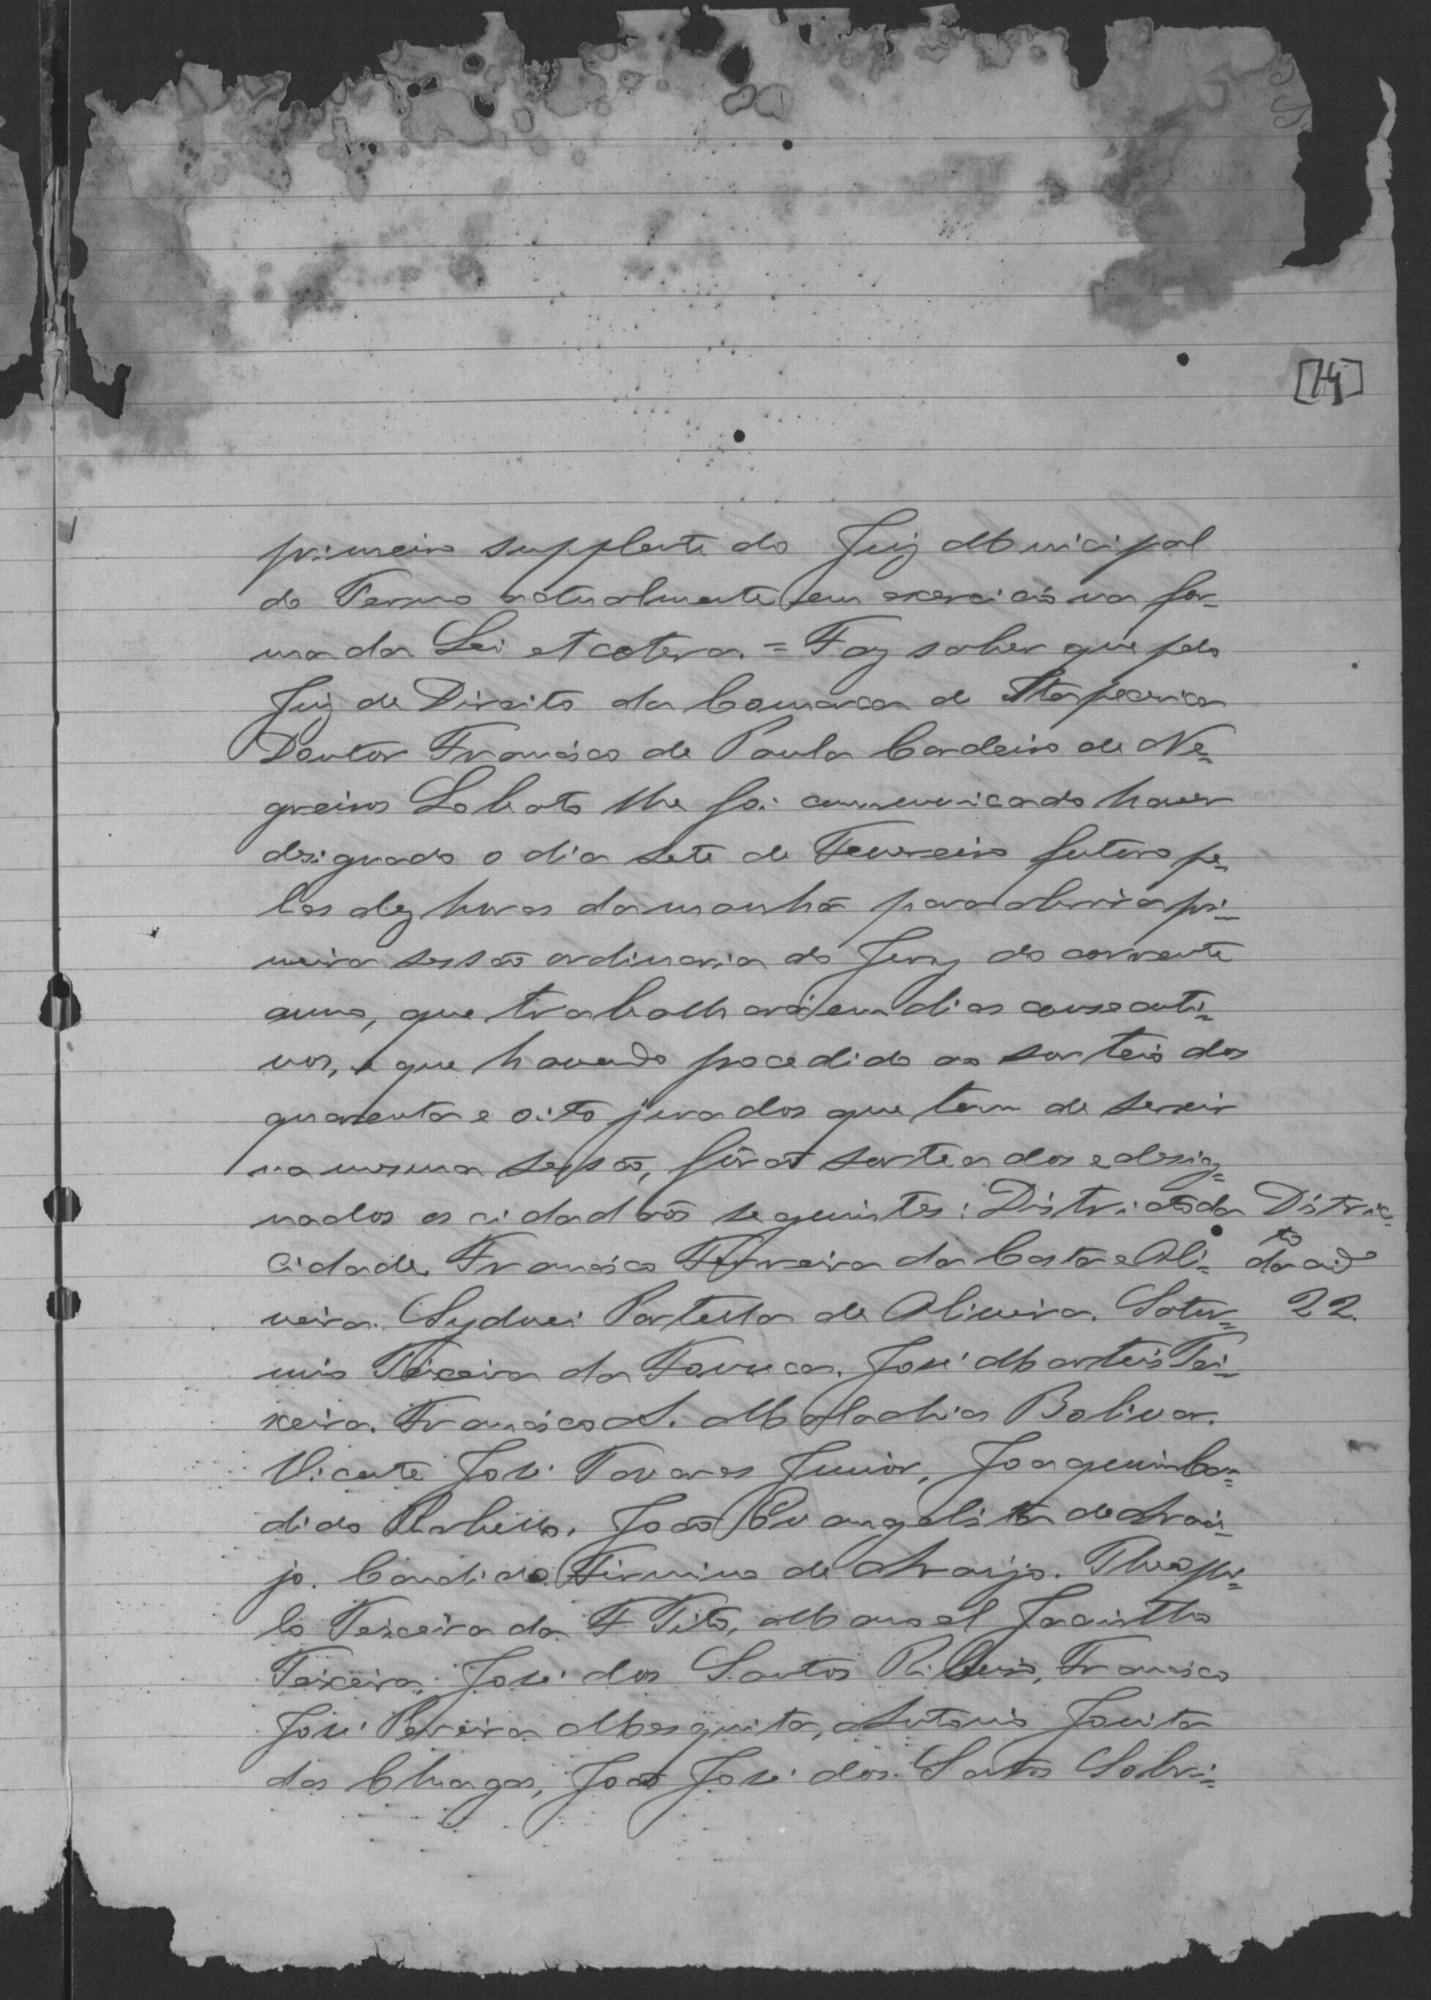 [14]
primeiro supplente do Juiz Municipal
do Termo actualmente em exercicio na for-
ma da Lei etcetera. = Faz saber que pelo
Juiz de Direito da Comarca de Itapecerica
Doutor Francisco de Paula Cordeiro de Ne-
greiros Lobato lhe foi communicado haver
designado o dia sete de Fevereiro futuro pe-
las dez horas da manhã para abrir a pri-
meira sessão ordinaria do Jury do corrente
anno, que trabalhará em dias consecuti-
vos, e que havendo procedido ao sorteio dos
quarenta e oito jurados que tem de servir
na mesma sessão, fôrão sorteados e desig-
nados os cidadãos seguintes: Districto da
Cidade, Francisco Ferreira da Costa e Oli-
veira. Sydnei Portella de Oliveira. Satur-
nino Teixeira da Fonseca. José Martins Tei-
xeira. Francisco A. Malachias Bolivar.
Vicente José Tavares Junior, Joaquim Can-
dido Rabello. João Evangelista de Arau-
jo. Candido Firmino de Araujo. Theophi-
lo Teixeira da F. Tito, Manoel Jacintho
Teixeira, José dos Santos Ribeiro, Francisco
José Pereira Mesquita, Antonio Jovita
das Chagas, João José dos Santos Sobri-
Distric-
to
da cid
22.